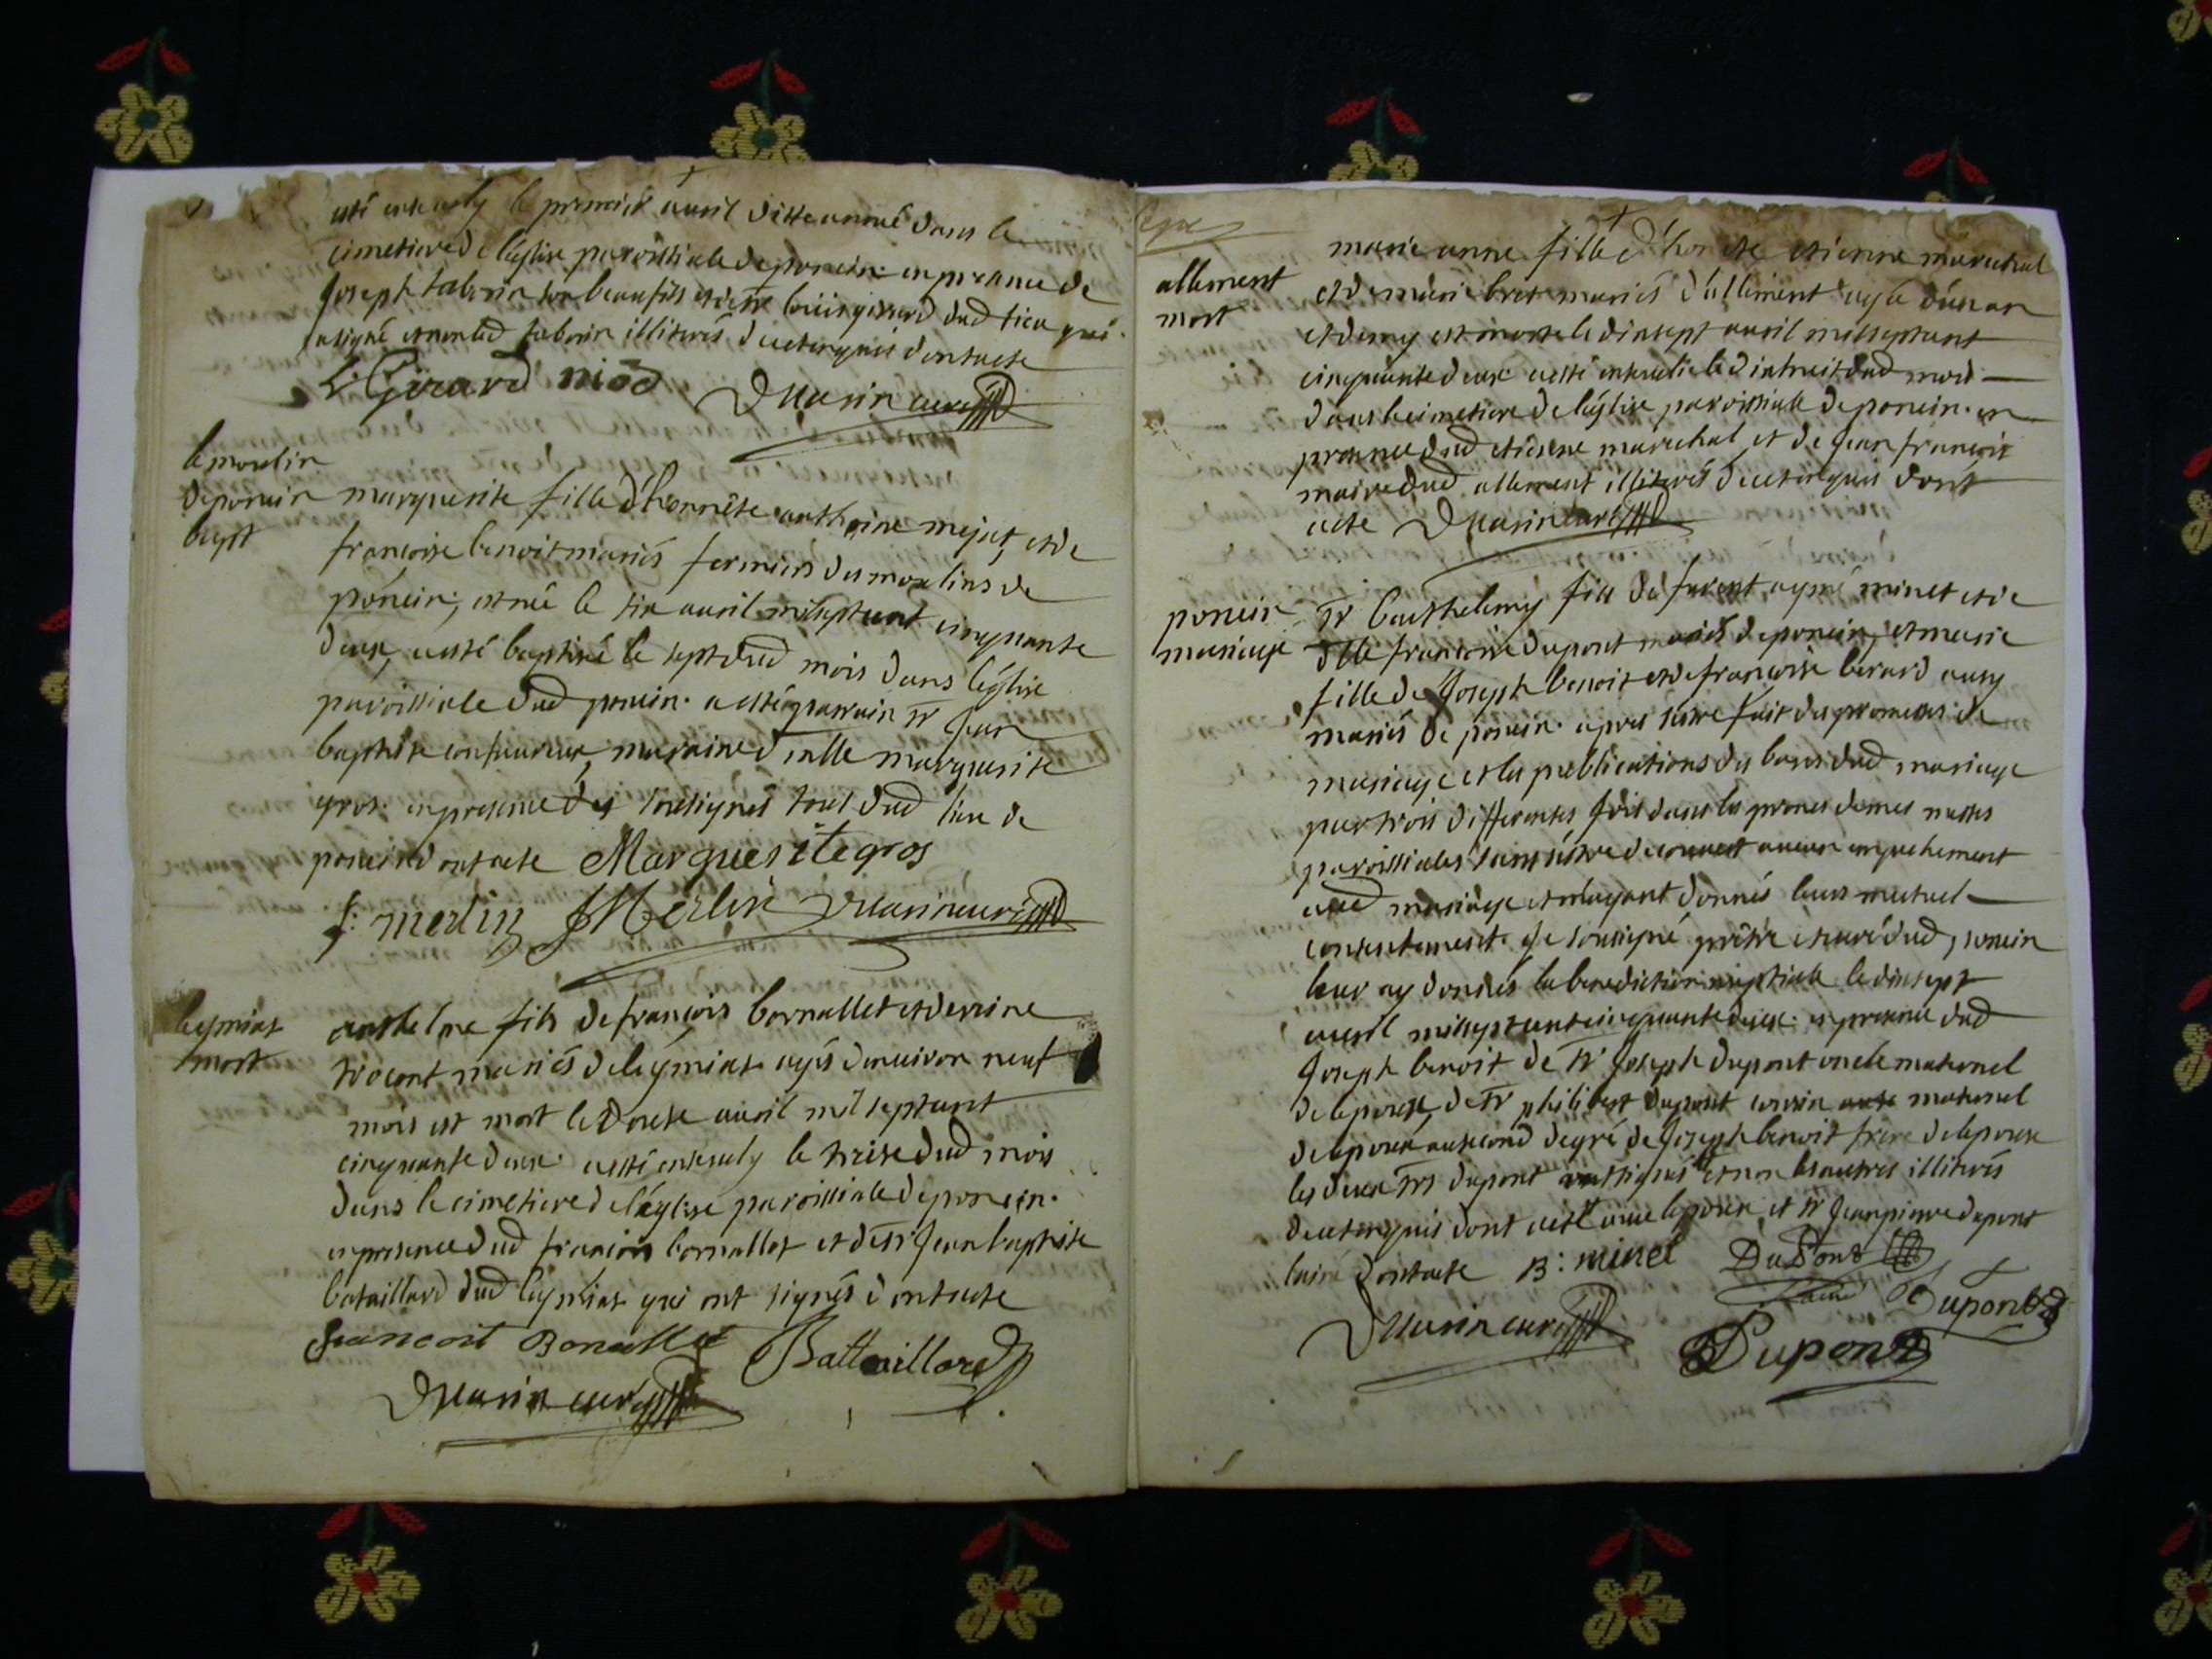 esté ensevely le premier avril ditte année dans le
cimetiere de leglise paroissiale de poncin en presence de
Joseph tabouin son beaufils et de sr louis girard dud lieu qui
a signé et non led tabouin illiterés de ce enquis dont acte
L: Girard niód D Marin curé
le moulin
de poncin
bapt
marguerite fille d'honnête anthoine mejat, et de
francoise benoit mariés fermiers des moulins de
poncin, est née le six avril mil sept cent cinquante
deux, a esté baptisé le sept dud mois dans l'église
paroissiale dud poncin. a esté parrain sr Jean
baptiste maraine dlle marguerite
gros. en presence des soussignés tous dud lieu de
poncin dont acte Marguerite gros
f: merlin J Merlin D Marin curé
leymiat
mort
anthelme fils de françois bornallet et de
mariés de leymiat agés d'environ neuf
mois est mort le douze avril mil sept cent
cinquante deux. a esté ensevely le treize dud mois
dans le cimetiere de l'église paroissiale de poncin.
en presence dud françois bornallet et de sr Jean baptiste
bataillard dud leymiat qui ont signés dont acte
francoit Bonallet Battaillard
D Marin curé
allement
mort
marie anne fille d'honete etienne marechal
et de marie bret mariés d'allement agée d'un an
et demy est morte le dixsept avril mil sept cent
cinquante deux a esté ensevelie le dixhuit dud mois
dans le cimetiere de l'église paroissiale de poncin. en
presence dud etienne marechal, et de Jean françois
maire dud allement illiterés de ce enquis dont
acte D Marin curé
poncin
mariage
sr barthelemy fils de fuent aymé minet et de
dlle francoise dupont mariés de poncin, et marie
fille de Joseph benoit et de françoise bérard aussy
mariés de poncin. apres s'estre fait des promesses de
mariage et les publications des bans dud mariage
par trois differentes fois dans les prones de mes messes
paroissiales sans s'estre decouvert aucun empechement
aud mariage et m'ayant donnés leurs mutuel
consentement. Je soussigné prêtre et curé dud poncin
leur ay donnés la benediction nuptiale le dixsept
avril mil sept cent cinquante deux. en presence dud
Joseph benoit de sr Joseph dupont oncle maternel
de lepoux, de sr philibert dupont cousin maternel
de lepoux au second degré de Joseph benoit frere de lepouse
les deux srs dupont ont signés et non les autres illiterés
de ce enquis dont acte avec lepoux, et sr Jean pierre dupont
lainé dont acte B: minet DuPont
lainé Dupont
D Marin curé Dupont